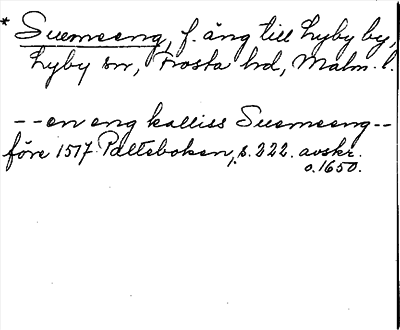 * Suemeeng, f. äng till Lyby by,
Lyby sn, Frosta hd, Malm. l.
-- en eng kalliss Suemeeng --
före 1517 Palteboken, s. 222. avskr.
o. 1650.